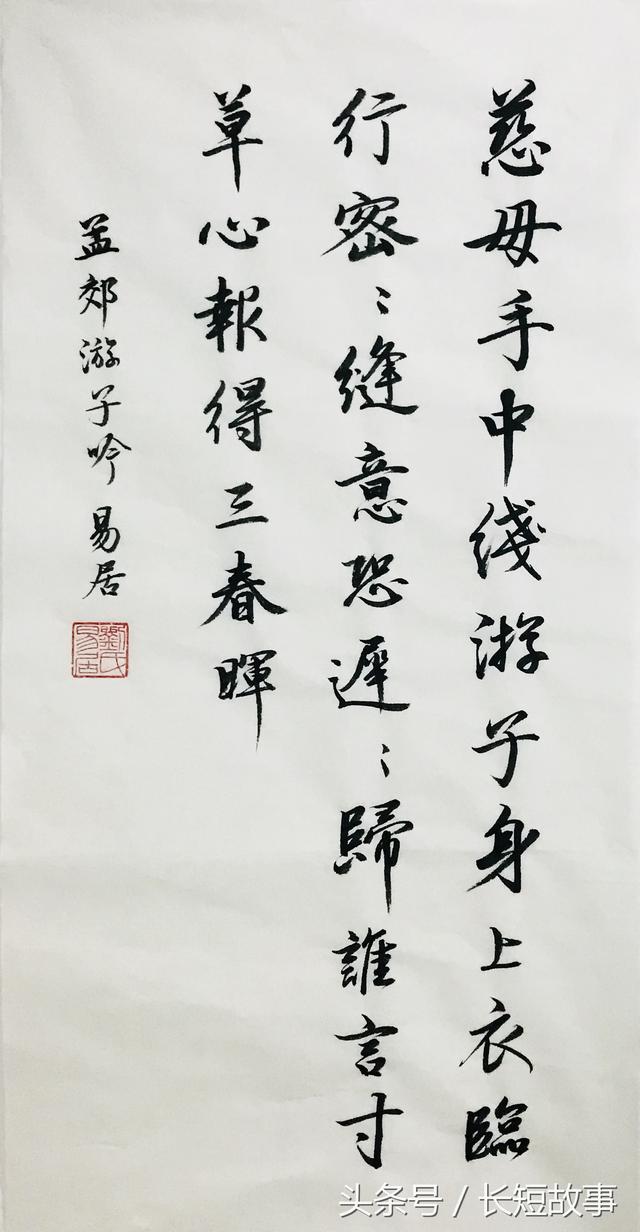 慈母手中綫游子身上衣臨
行密〻縫意恐遲〻歸誰言寸
草心報得三春暉
孟郊游子吟 易居
劉氏易居
头条号 / 长短故事